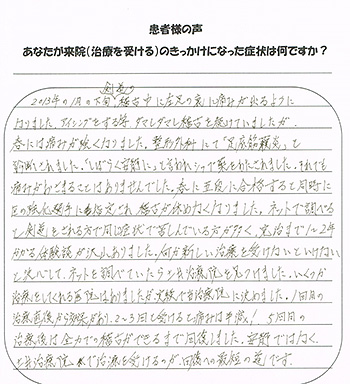 患者様の声
あなたが来院(治療を受ける)のきっかけになった症状は何ですか?
剣道の
2013年の1月の下旬、稽古中に左足の裏に痛みが出るように
なりました。アイシングをする等、ダマしダマし稽古を続けていましたが、
春には痛みが強くなりました。整形外科にて「足底筋膜炎」と
診断されました。「しばらく安静に」と言われシップ薬をわたされました。それでも
痛みがおさまることはありませんでした。春に五段に合格すると同時に
区の強化選手にも指定され稽古が休めなくなりました。ネットで調べる
と剣道をされる方で同じ症状で苦しんでいる方が多く、完治まで1〜2年
かかる体験談が沢山ありました。何か新しい治療を受けないといけない
と決心して、ネットを調べていたら 治療院を見つけました。いくつか
治療をしてくれる 院はありましたが 実績で当治療院に決めました。1回目の
治療直後から効果があり、2〜3回も受けると痛みは半減! 5回目の
治療後は全力での稽古ができるまで回復しました。安静ではなく、
治療院 で治療を受けるのが、回復への最短の道です。